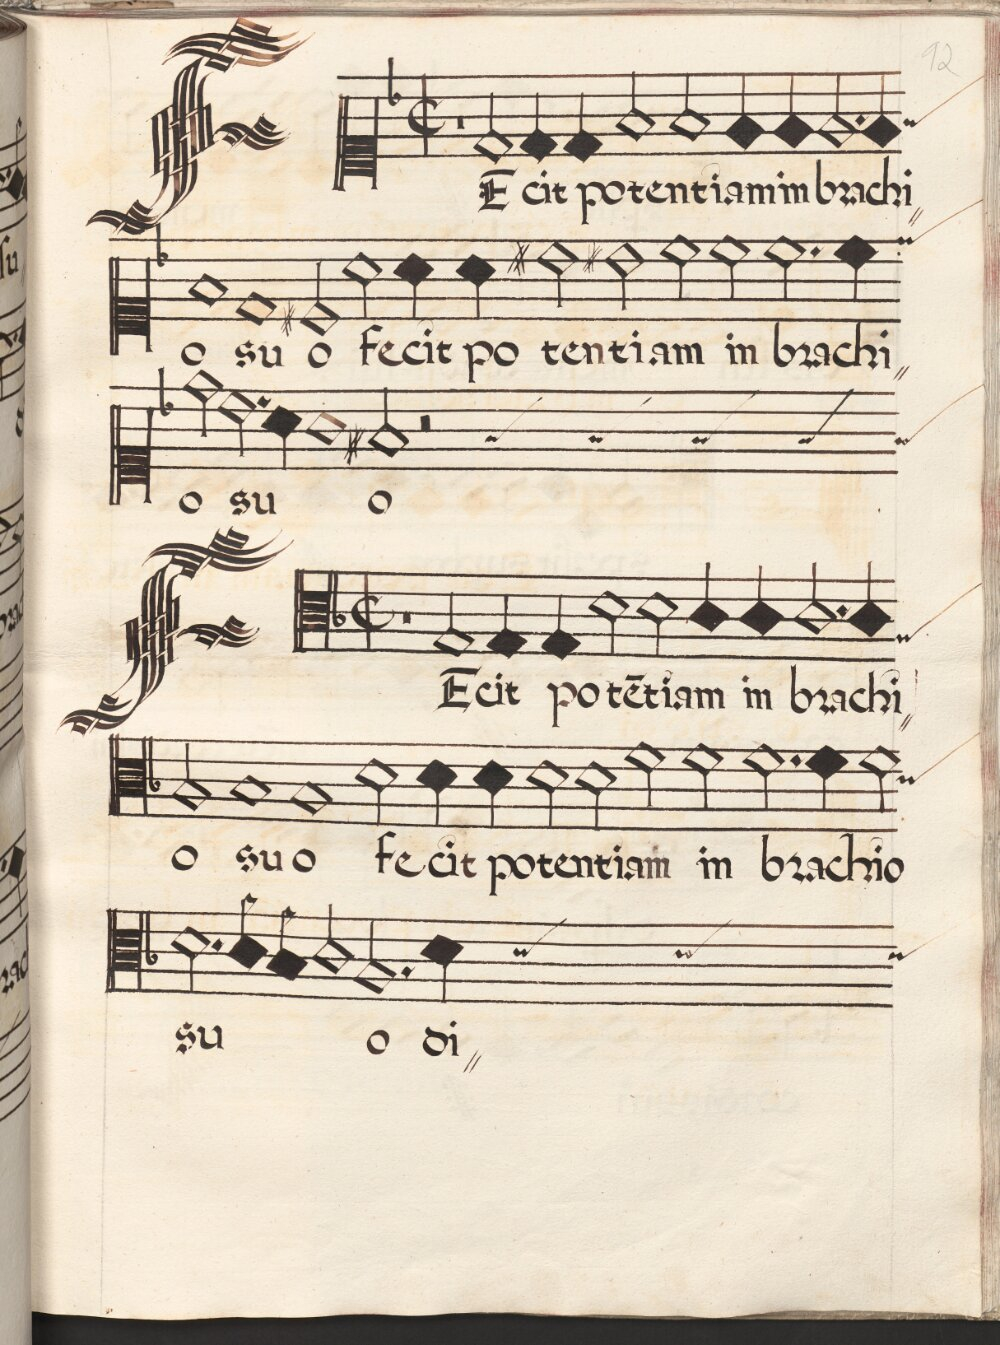 92
FEcit potentiam in brachi
o su o fecit po tentiam in brachi
o su o
FEcit po tētiam in brachi
o su o fecit potentiam in brachio
su o di